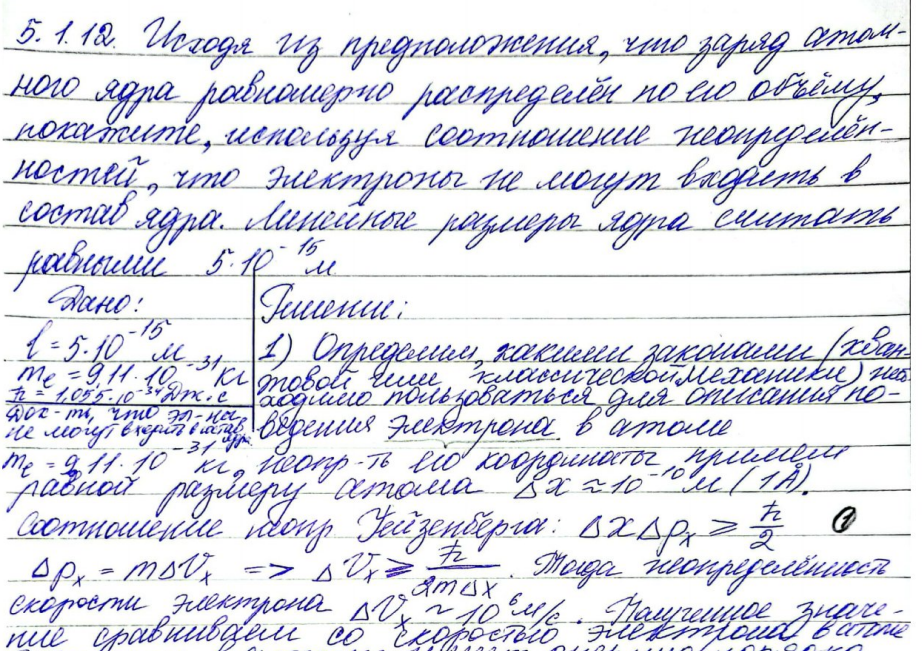 5.1.12. Исходя из предположения, что заряд атом-
ного ядра равномерно распределён по его объёму,
покажите, используя соотношение неопределён-
ностей, что электроны не могут входить в
состав ядра. Линейные размеры ядра считать
равными 5·10⁻¹⁵ м
Дано:
l = 5·10⁻¹⁵ м
mₑ = 9,11·10⁻³¹ кг
ħ = 1,055·10⁻³⁴ Дж·с
Док-ть, что эл-ны
не могут входить в состав ядра
Решение:
1) Определим, какими законами (кван-
товой или классической механики) необ-
ходимо пользоваться для описания по-
ведения электрона в атоме
mₑ = 9,11·10⁻³¹ кг, неопр-ть его координаты примем
равной размеру атома Δx ≈ 10⁻¹⁰ м (1Å).
Соотношение неопр Гейзенберга: Δx Δpₓ ⩾ ħ/2 ①
Δpₓ = mΔVₓ => ΔVₓ ⩾ ħ/2mΔx. Тогда неопределённость
скорости электрона ΔVₓ ~ 10⁶ м/с. Полученное значе-
ние сравниваем со скоростью электрона в атоме
порядка